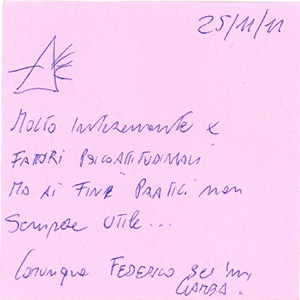 25/11/11
Molto interessante x
FATTORI PSICOATTITUDINALI
MA AI FINI "PRATICI" non
Sempre UTILE...
Comunque FEDERICO sei in
GAMBA.